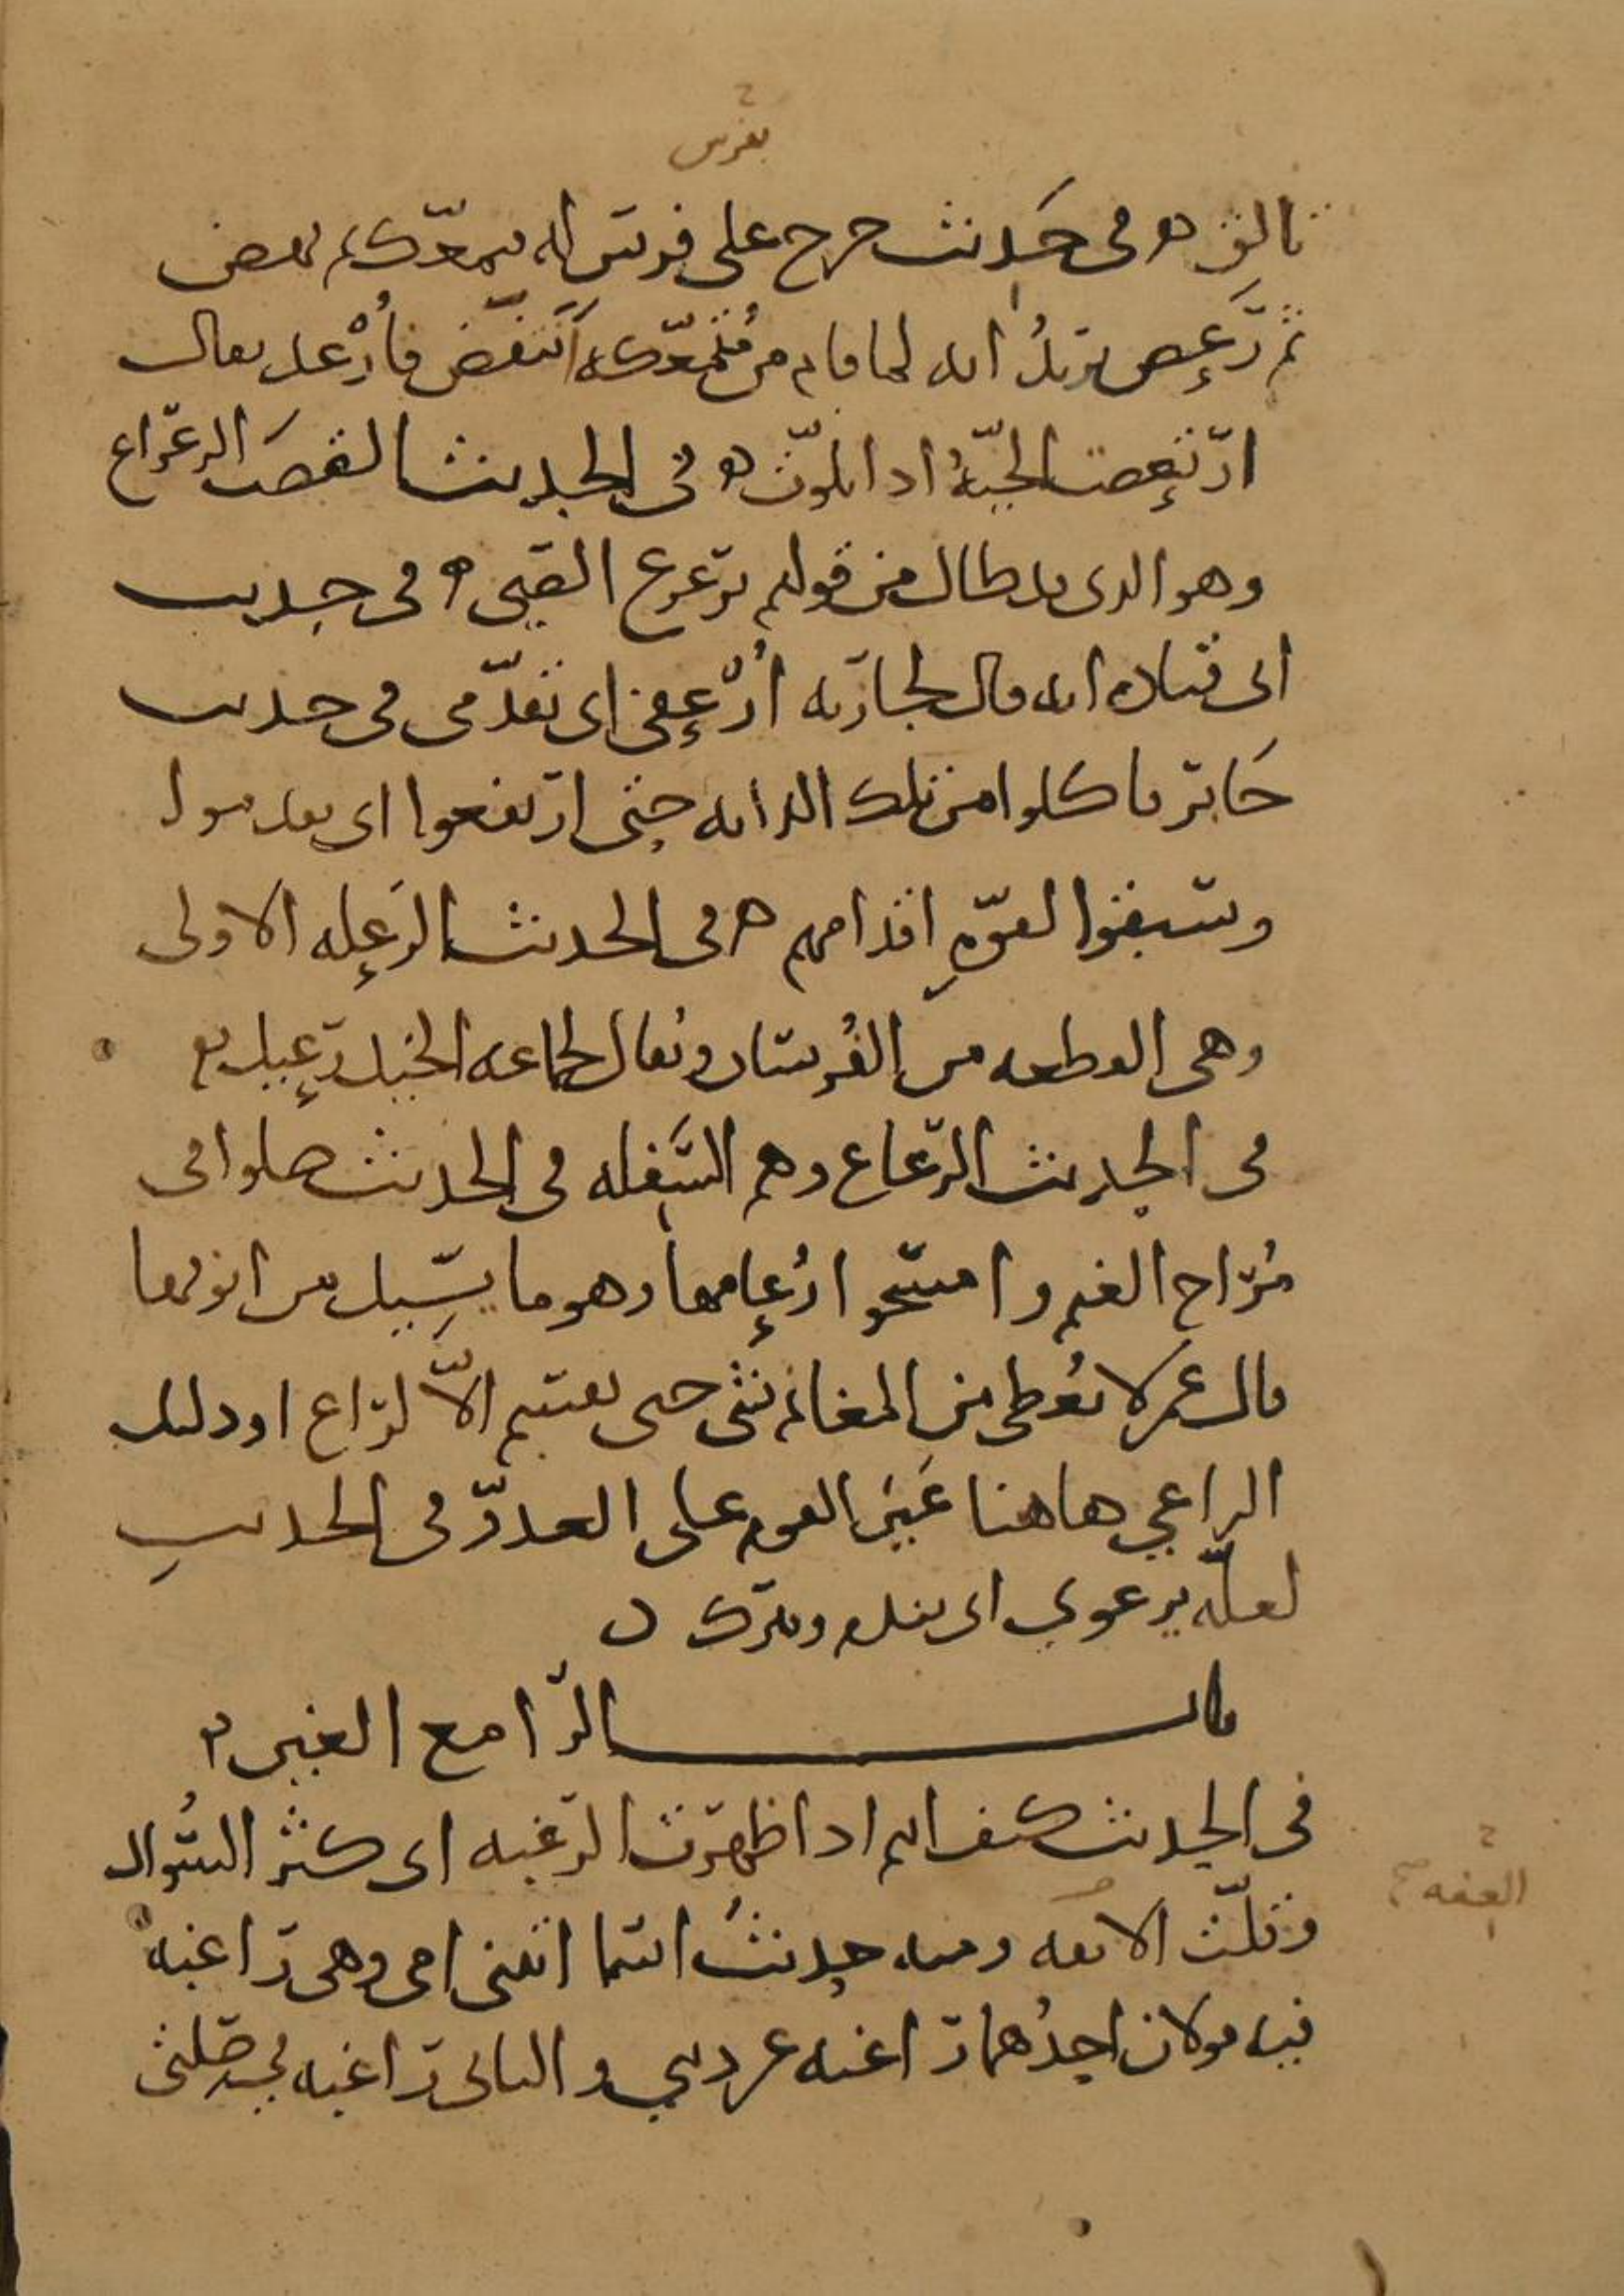 بفرس
تالق في حديث خرج على فرس له فتمعك فنهض
ثم رعص يريد انه لما قام من متمعكه انتفض فارعد يقال
ارتعصت الحية اذا تلوت في الحديث القصب الرعراع
وهو الذي قد طال من قولهم ترعرع الصبي في حديث
ابي قتادة انه قال لجارية ارعفي اي تقدمي في حديث
جابر فاكلوا من تلك الدابة حتى ارتعفوا اي تقدموا
وسبقوا لقوة اقدامهم في الحديث الرعلة الاولى
وهي القطعة من الفرسان ويقال لجماعة الخيل رعيل
في الحديث الرعاع وهم السفلة في الحديث صلوا في
مراح الغنم وامسحوا رعامها وهو ما يسيل من انوفها
قال عمر لا يعطى من المغانم شي حتى يقسم الا لراع او دليل
الراعي هاهنا عين القوم على العدو في الحديث
لعله يرعوي اي يندم ويترك
باب الرا مع الغين
في الحديث كيف انتم اذا ظهرت الرغبة اي كثر السوال
وقلت العفة ومنه حديث اسما اتتني امي وهي راغبة
فيه قولان احدهما راغبة عن ديني والثاني راغبة في صلتي
العفة صح